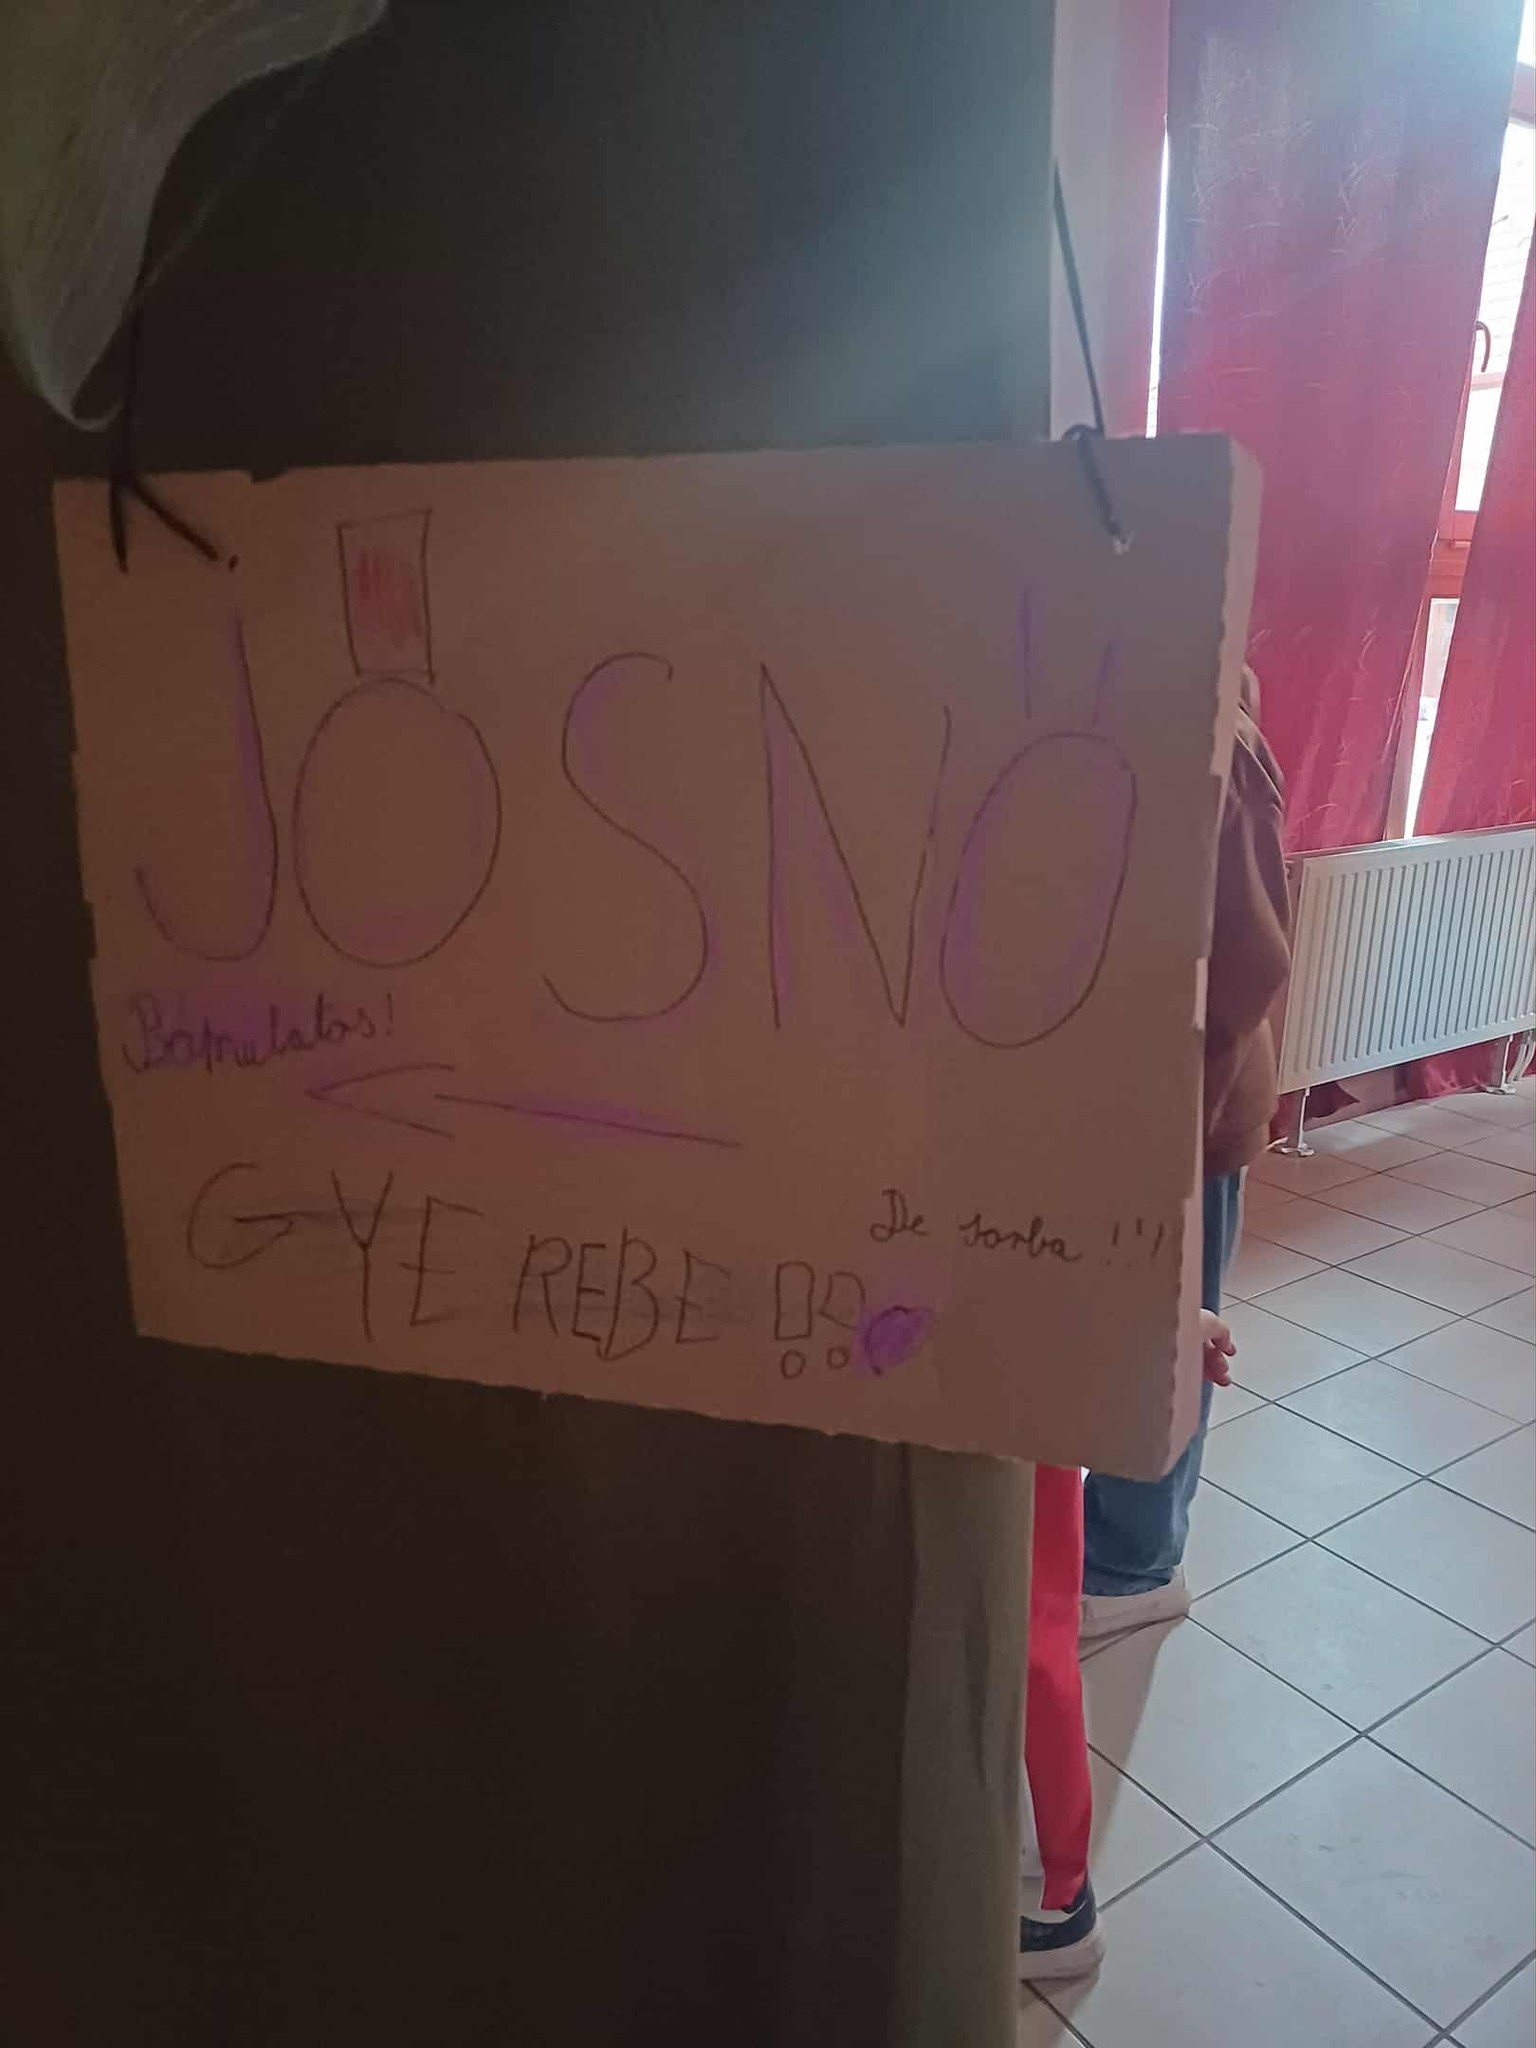 JÓSNŐ
Bámulatos!
GYE REBE !!
De sorba !!!